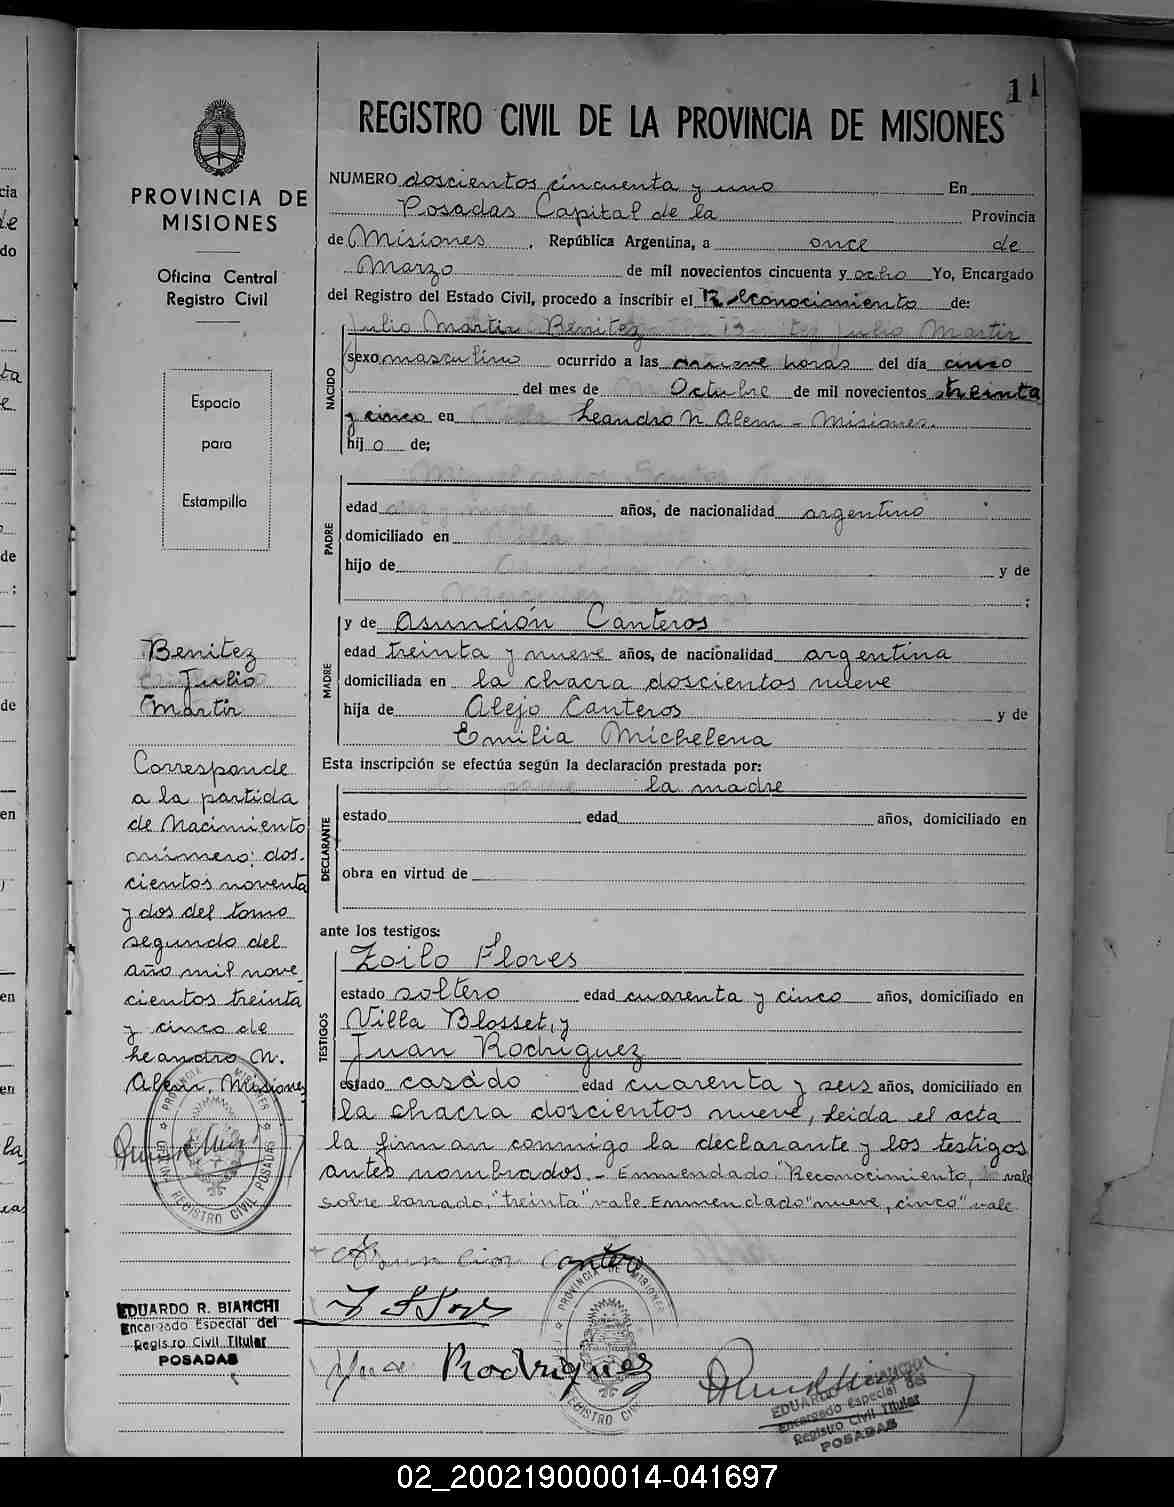 11
REGISTRO CIVIL DE LA PROVINCIA DE MISIONES
PROVINCIA DE
MISIONES
Oficina Central
Registro Civil
Espacio
para
Estampilla
NUMERO doscientos cincuenta y uno En
Posadas Capital de la Provincia
de Misiones, República Argentina, a once de
Marzo de mil novecientos cincuenta y ocho Yo, Encargado
del Registro del Estado Civil, procedo a inscribir el Reconocimiento de:
NACIDO
Julio Martir Benitez Julio Martir
sexo masculino ocurrido a las nueve horas del día cinco
del mes de Octubre de mil novecientos treinta
y cinco en Leandro N. Alem - Misiones.
hijo de;
PADRE
edad años, de nacionalidad argentino
domiciliado en
hijo de y de
;
MADRE
y de Asunción Canteros
edad treinta y nueve años, de nacionalidad argentina
domiciliada en la chacra doscientos nueve
hija de Alejo Canteros y de
Emilia Michelena
Esta inscripción se efectúa según la declaración prestada por:
DECLARANTE
la madre
estado edad años, domiciliado en
obra en virtud de
ante los testigos:
TESTIGOS
Zoilo Flores
estado soltero edad cuarenta y cinco años, domiciliado en
Villa Blosset, y
Juan Rodriguez
estado casado edad cuarenta y seis años, domiciliado en
la chacra doscientos nueve, Leida el acta
la firman conmigo la declarante y los testigos
antes nombrados. - Enmendado "Reconocimiento, vale
sobre borrado, "treinta" vale. Enmendado "nueve, cinco" vale
Asuncion Cantero
Rodriguez
Benitez
Julio
Martir
Corresponde
a la partida
de Nacimiento
número: dos-
cientos noventa
y dos del tomo
segundo del
año mil nove
cientos treinta
y cinco de
Leandro N.
Alem, Misiones
PROVINCIA DE MISIONES
REGISTRO CIVIL POSADAS
EDUARDO R. BIANCHI
Encargado Especial del
Registro Civil Titular
POSADAS
PROVINCIA DE MISIONES
REGISTRO CIVIL
EDUARDO R. BIANCHI
Encargado Especial del
Registro Civil Titular
POSADAS
02_200219000014-041697